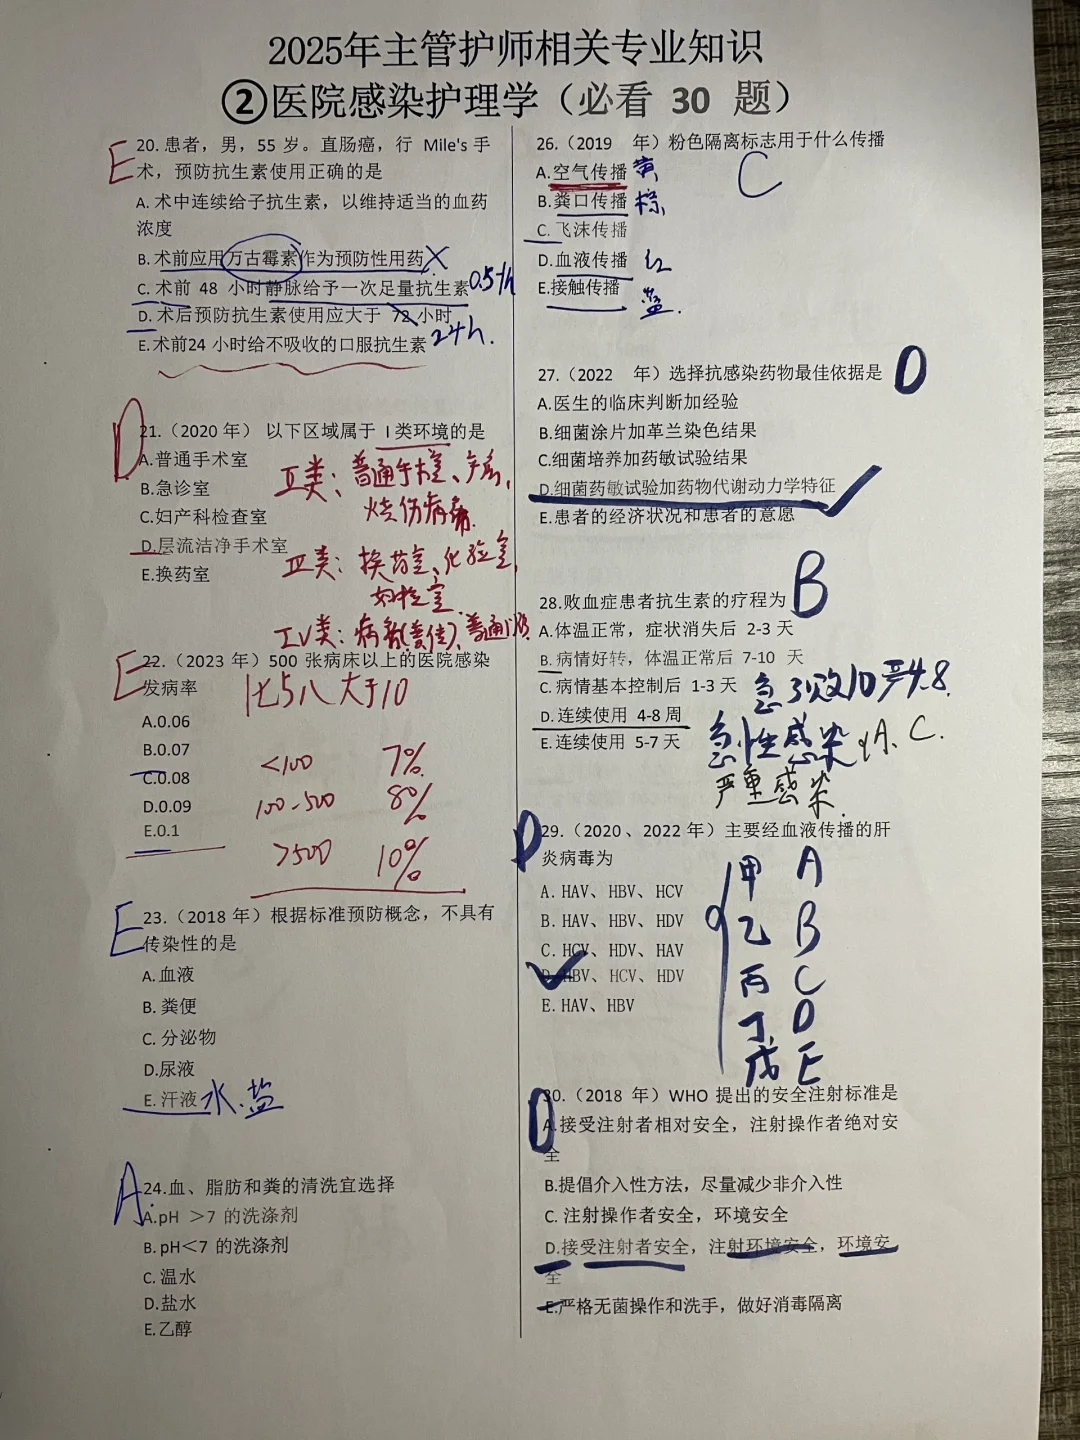 2025年主管护师相关专业知识
②医院感染护理学（必看 30 题）
E
20. 患者，男，55 岁。直肠癌，行 Mile's 手
术，预防抗生素使用正确的是
A. 术中连续给子抗生素，以维持适当的血药
浓度
B. 术前应用万古霉素作为预防性用药 X
C. 术前 48 小时静脉给予一次足量抗生素 0.5-1h
D. 术后预防抗生素使用应大于 72 小时
24h.
E. 术前24 小时给不吸收的口服抗生素
D
21.（2020 年） 以下区域属于 I 类环境的是
A.普通手术室
B.急诊室
C.妇产科检查室
D.层流洁净手术室
E.换药室
II类：普通手术室、产房，
烧伤病房
III类：换药室、化验室，
妇检室
IV类：病
E
22.（2023 年）500 张病床以上的医院感染
发病率
七 5 八 大于10
A.0.06
B.0.07
C.0.08
D.0.09
E.0.1
<100 7%
100-500 8%
>500 10%
E
23.（2018 年）根据标准预防概念，不具有
传染性的是
A.血液
B. 粪便
C. 分泌物
D.尿液
E. 汗液 水.盐
A
24.血、脂肪和粪的清洗宜选择
A.pH ＞7 的洗涤剂
B. pH＜7 的洗涤剂
C. 温水
D.盐水
E.乙醇
26.（2019 年）粉色隔离标志用于什么传播
C
A.空气传播 黄
B.粪口传播 棕
C. 飞沫传播
D.血液传播 红
E.接触传播 蓝.
27.（2022 年）选择抗感染药物最佳依据是 D
A.医生的临床判断加经验
B.细菌涂片加革兰染色结果
C.细菌培养加药敏试验结果
D.细菌药敏试验加药物代谢动力学特征
E.患者的经济状况和患者的意愿
28.败血症患者抗生素的疗程为 B
A.体温正常，症状消失后 2-3 天
B. 病情好转，体温正常后 7-10 天
C. 病情基本控制后 1-3 天
急3败10严4.8.
D. 连续使用 4-8 周
E. 连续使用 5-7 天
急性感染 A、C.
严重感染.
D
29.（2020、2022 年）主要经血液传播的肝
炎病毒为
A. HAV、HBV、HCV
B. HAV、HBV、HDV
C. HCV、HDV、HAV
D. HBV、HCV、HDV
E. HAV、HBV
甲 A
乙 B
丙 C
丁 D
戊 E
D
30.（2018 年）WHO 提出的安全注射标准是
A.接受注射者相对安全，注射操作者绝对安
全
B.提倡介入性方法，尽量减少非介入性
C. 注射操作者安全，环境安全
D.接受注射者安全，注射环境安全，环境安
全
E.严格无菌操作和洗手，做好消毒隔离